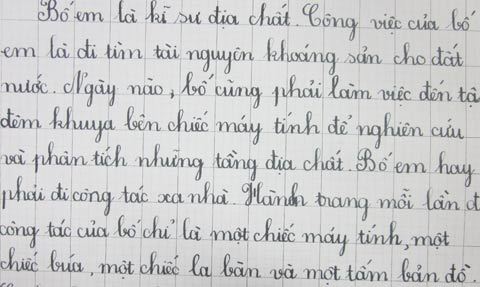 Bố em là kĩ sư địa chất. Công việc của bố
em là đi tìm tài nguyên khoáng sản cho đất
nước. Ngày nào, bố cũng phải làm việc đến tậ
đêm khuya bên chiếc máy tính để nghiên cứu
và phân tích những tầng địa chất. Bố em hay
phải đi công tác xa nhà. Hành trang mỗi lần đ
công tác của bố chỉ là một chiếc máy tính, một
chiếc búa, một chiếc la bàn và một tấm bản đồ.